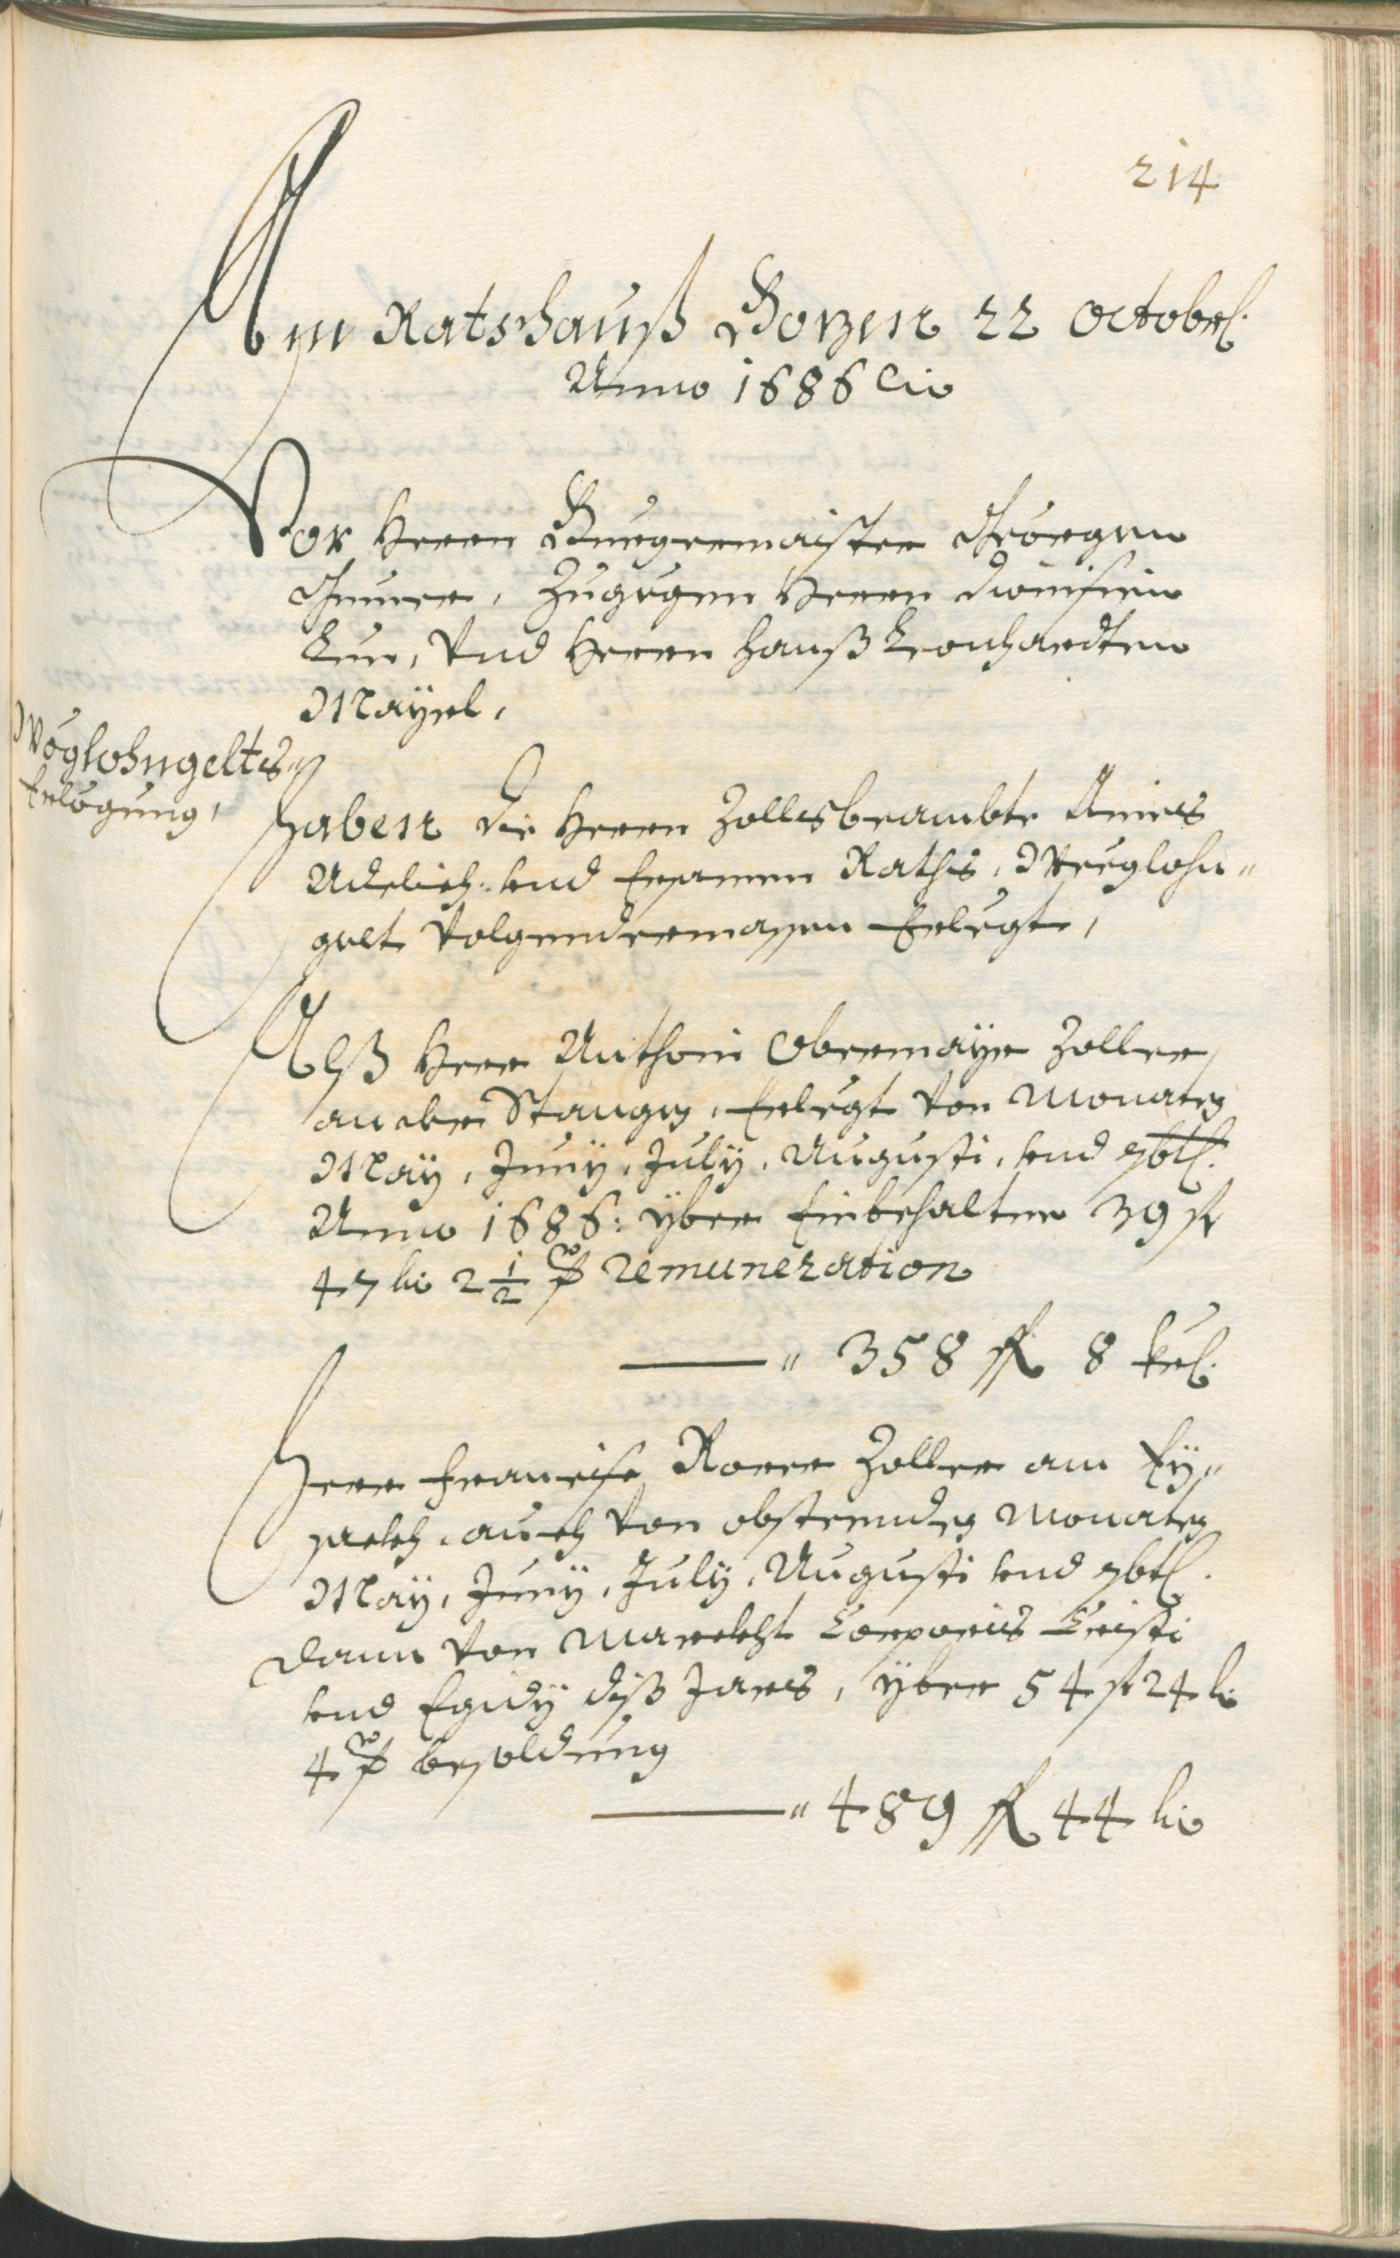 214
Am Ratshauß Bozen 22 Octobr.
Anno 1686 etc
Vor Herrn Burgermaister Georgen
Gumer, Zugegen Herrn Dionisien
Lun, Vnd Herrn Hanß Leonhardten
Mayrl,
Weglohngelts
Erlegung,
Haben die Herrn Zollsbeambte Aines
Adelich: vnd Ersamen Raths, Weeglohn„
gelt Volgendermassen Erlegt,
Alß Herr Anthoni Obermayr Zoller
an der Stanges, Erlegt von Monats
May, Juny, July, Augusti, vnd 7btr.
Anno 1686: yber Einbehaltne 39 f
47 kr 2 1/2 remuneration
„ 358 fl 8 kr.
Herr Francisc Rorer Zoller am Ey„
sackh, auch von obsteendes Monats
May, Juny, July, Augusti vnd 7btr.
dann von Marckht Corporis Cristi
vnd Egidy diß Jars, yber 54 f 24 kr
4 besoldung
„ 489 fl 44 kr